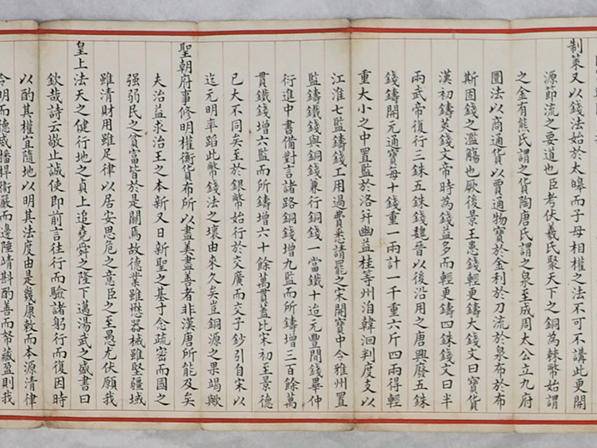 制策又以錢法始於太皥而子母相權之法不可不講此更開
源節流之要道也臣考伏羲氏聚天下之銅為棘幣始謂
之金有熊氏謂之貨陶唐氏謂之泉至成周太公立九府
圜法以商通貨以賈通物寶於金利於刀流於泉布於布
斯固錢之濫觴也厥後景王患錢輕更鑄大錢文曰寶貨
漢初鑄莢錢文帝時為錢益多而輕更鑄四銖錢文曰半
兩武帝復行三銖五銖錢魏晉以後沿用之唐興廢五銖
錢鑄開元通寶每十錢重一兩計一千重六斤四兩得輕
重大小之中置監於洛并幽益桂等州洎韓洄判度支以
江淮七監鑄錢工用過費悉請罷之宋開寶中令雅州置
監鑄鐵錢與銅錢兼行銅錢一當鐵十迨元豐間錢畢仲
衍進中書備對言諸路銅錢增九監而所鑄增三百餘萬
貫鐵錢增六監而所鑄增六十餘萬貫蓋比宋初至景德
已大不同矣至於銀幣始行於交廣而交子鈔引自宋以
迄元明率蹈此幣錢法之壞由來久矣豈銅源之果竭歟
聖朝府事修明權衡貨布所以盡美盡善者非漢唐所能及矣
夫治益求治王之本新又日新聖之基寸念疏密而國之
强弱民之貧富皆於是關焉故德業雖懋器械雖堅疆域
雖清財用雖足律以居安思危之意臣之至愚尤伏願我
皇上法天之健行地之貞上追堯舜之隆下邁湯武之盛書曰
欽哉詩云敬止誠使即前言往行而驗諸躬行而復因時
以酌其權宜隨地以明其法度由是幾康敕而本源清律
令明而德威播捍衛嚴而邊陲靖斟酌善而帑藏盈則我